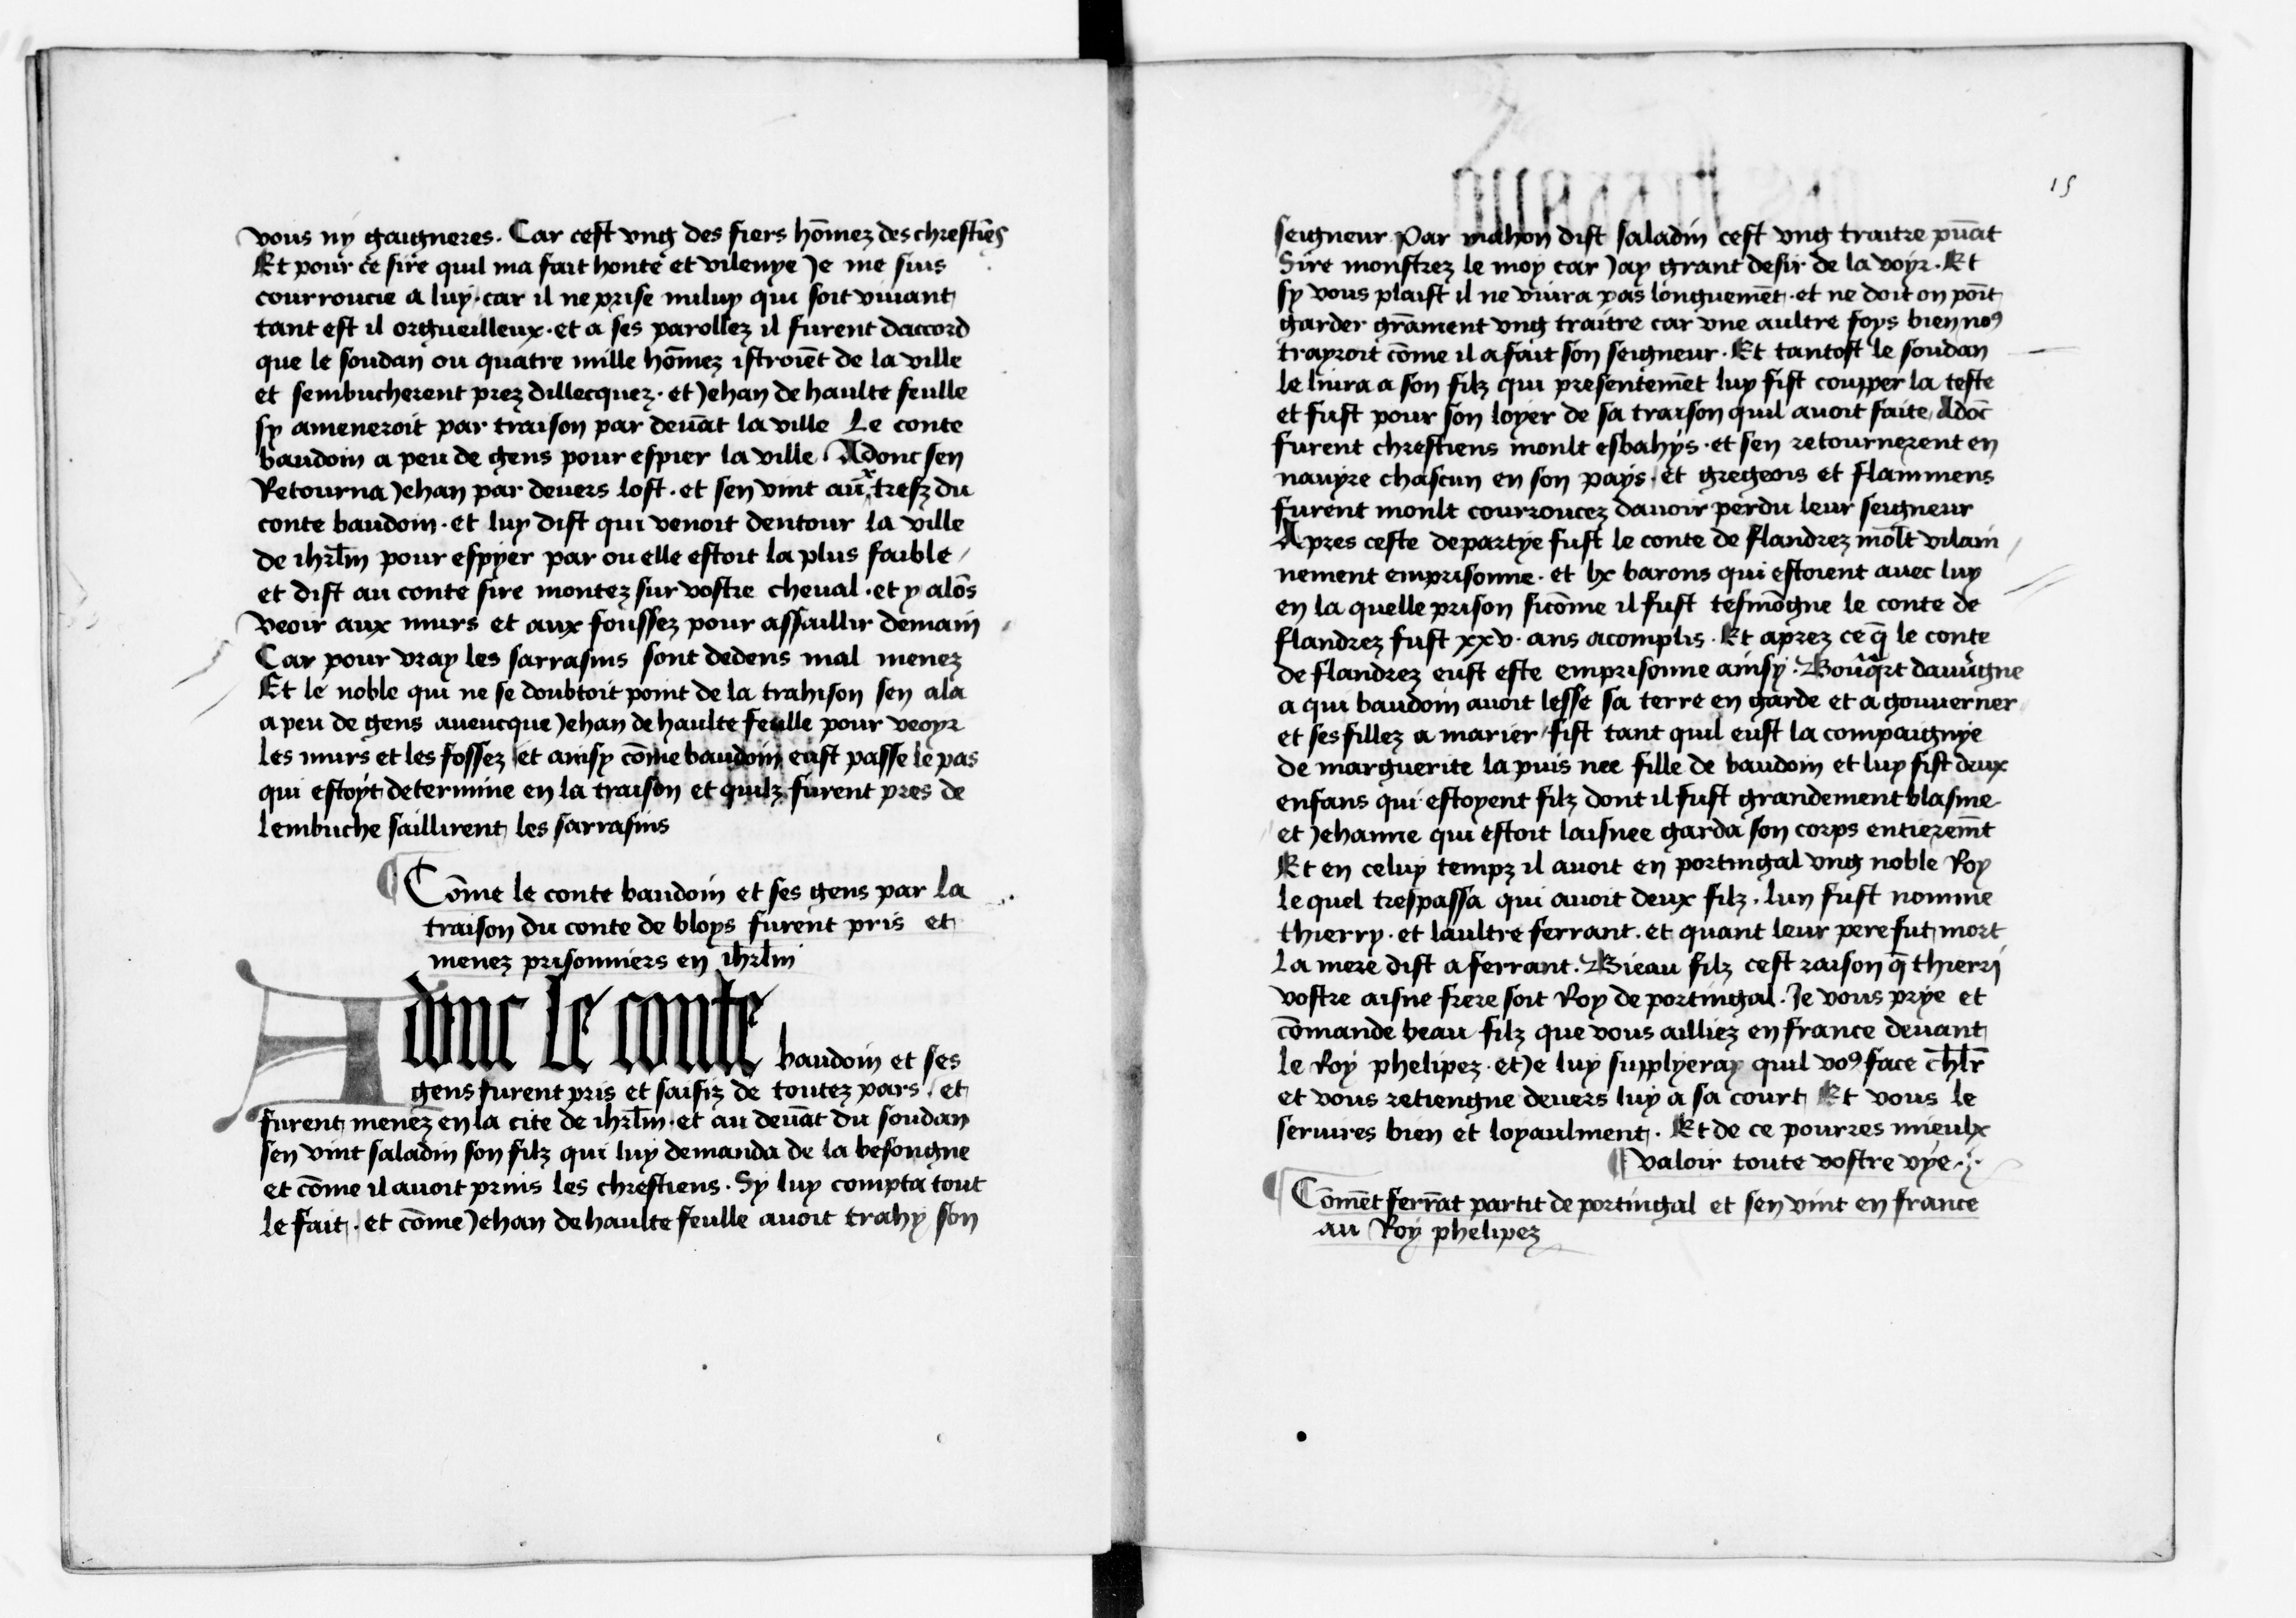 vous ny gaigneres. Car cest vng des fiers hōmez des chrestiēs
Et pour ce sire quil ma fait honte et vilenye Je me suis
courroucie a luy. car il ne prise nuluy qui soit viuant
tant est il orgueilleux. et a ses parollez il furent daccord
que le soudan ou quatre mille hōmez istroiēt de la ville
et sembucherent prez dillecquez. et Jehan de haulte feulle
sy ameneroit par traison par deuāt la ville Le conte
baudoin a peu de gens pour espier la ville. Adonc sen
Retourna Jehan par deuers lost. et sen vint au x trefz du
conte baudoin. et luy dist qui venoit dentour la ville
de ihrlm̄ pour espyer par ou elle estoit la plus faible /
et dist au conte sire montez sur vostre cheual. et y alōs
Veoir aux murs et aux foussez pour assaillir demain
Car pour vray les sarrasins sont dedens mal menez
Et le noble qui ne se doubtoit point de la trahison sen ala
a peu de gens aueucque Jehan de haulte feulle pour veoyr
les murs et les fossez et ainsy cōme baudoin eust passe le pas
qui estoyt determine en la traison et quilz furent pres de
lembuche saillirent les sarrasins
¶ Cōme le conte baudoin et ses gens par la
traison du conte de bloys furent pris et
menez prisonniers en ihrlm̄
Adonc le conte baudoin et ses
gens furent pris et saisiz de toutez pars. et
furent menez en la cite de ihrlm̄. et au deuāt du soudan
sen vint saladin son filz qui luy demanda de la besongne
et cōme il auoit prins les chrestiens. Sy luy compta tout
le fait. et cōme Jehan de haulte feulle auoit trahy son
15
seigneur. Par mahon dist saladin cest vng traitre puāt
Sire monstrez le moy car Jay grant desir de la voyr. Et
sy vous plaist il ne viura pas longuemēt. et ne doit on poīt
garder grāment vng traitre car vne aultre foys bien no⁹
trayroit cōme il a fait son seigneur. Et tantost le soudan
le liura a son filz qui presentemēt luy fist coupper la teste
et fust pour son loyer de sa traison quil auoit faite. Adōc
furent chrestiens moult esbahys. et sen retournerent en
nauyre chascun en son pays. et gregeois et flammens
furent moult courroucez dauoir perdu leur seigneur
Apres ceste departye fust le conte de flandrez mōlt vilain
nement emprisonne. et lx barons qui estoient auec luy
en la quelle prison sicōme il fust tesmōgne le conte de
flandrez fust xxv. ans acomplis. Et aprez ce q̄ le conte
de flandrez eust este emprisonne ainsy. Bouq̄rt dauūgne
a qui baudoin auoit lesse sa terre en garde et a gouuerner
et ses fillez a marier fist tant quil eust la compaignye
de marguerite la puis nee fille de baudoin et luy fist deux
enfans qui estoyent filz dont il fust grandement blasme
et Jehanne qui estoit laisnee garda son corps entieremēt
Et en celuy tempz il auoit en portingal vng noble Roy
le quel trespassa qui auoit deux filz. lun fust nomme
thierry. et laultre ferrant. et quant leur pere fut mort
La mere dist a ferrant. Bieau filz cest raison q̄ thierri
vostre aisne frere soit Roy de portingal. Je vous prye et
cōmande beau filz que vous ailliez en france deuant
le Roy phelipez. et Je luy supplyeray quil vo⁹ face chl̄r
et vous retiengne deuers luy a sa court Et vous le
seruires bien et loyaulment. Et de ce pourres mieulx
¶ valoir toute vostre vye.
¶ Cōmēt ferrāt partit de portingal et sen vint en france
au Roy phelipez